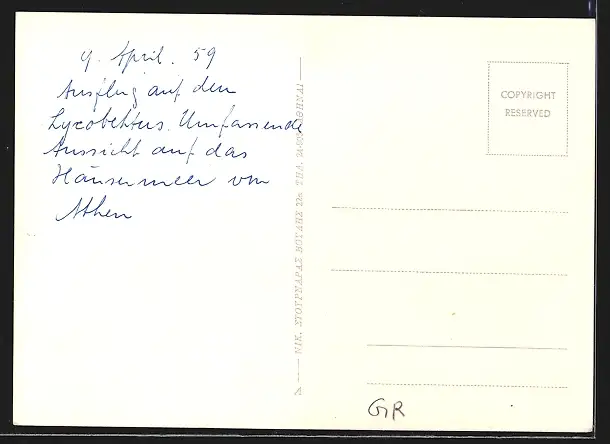 9. April. 59
Ausflug auf den
Lycobettus. Umfassende
Aussicht auf das
Häusermeer von
Athen
ΝΙΚ. ΣΤΟΥΡΝΑΡΑΣ ΒΟΥΛΗΣ ΤΗΛ.
COPYRIGHT
RESERVED
GR